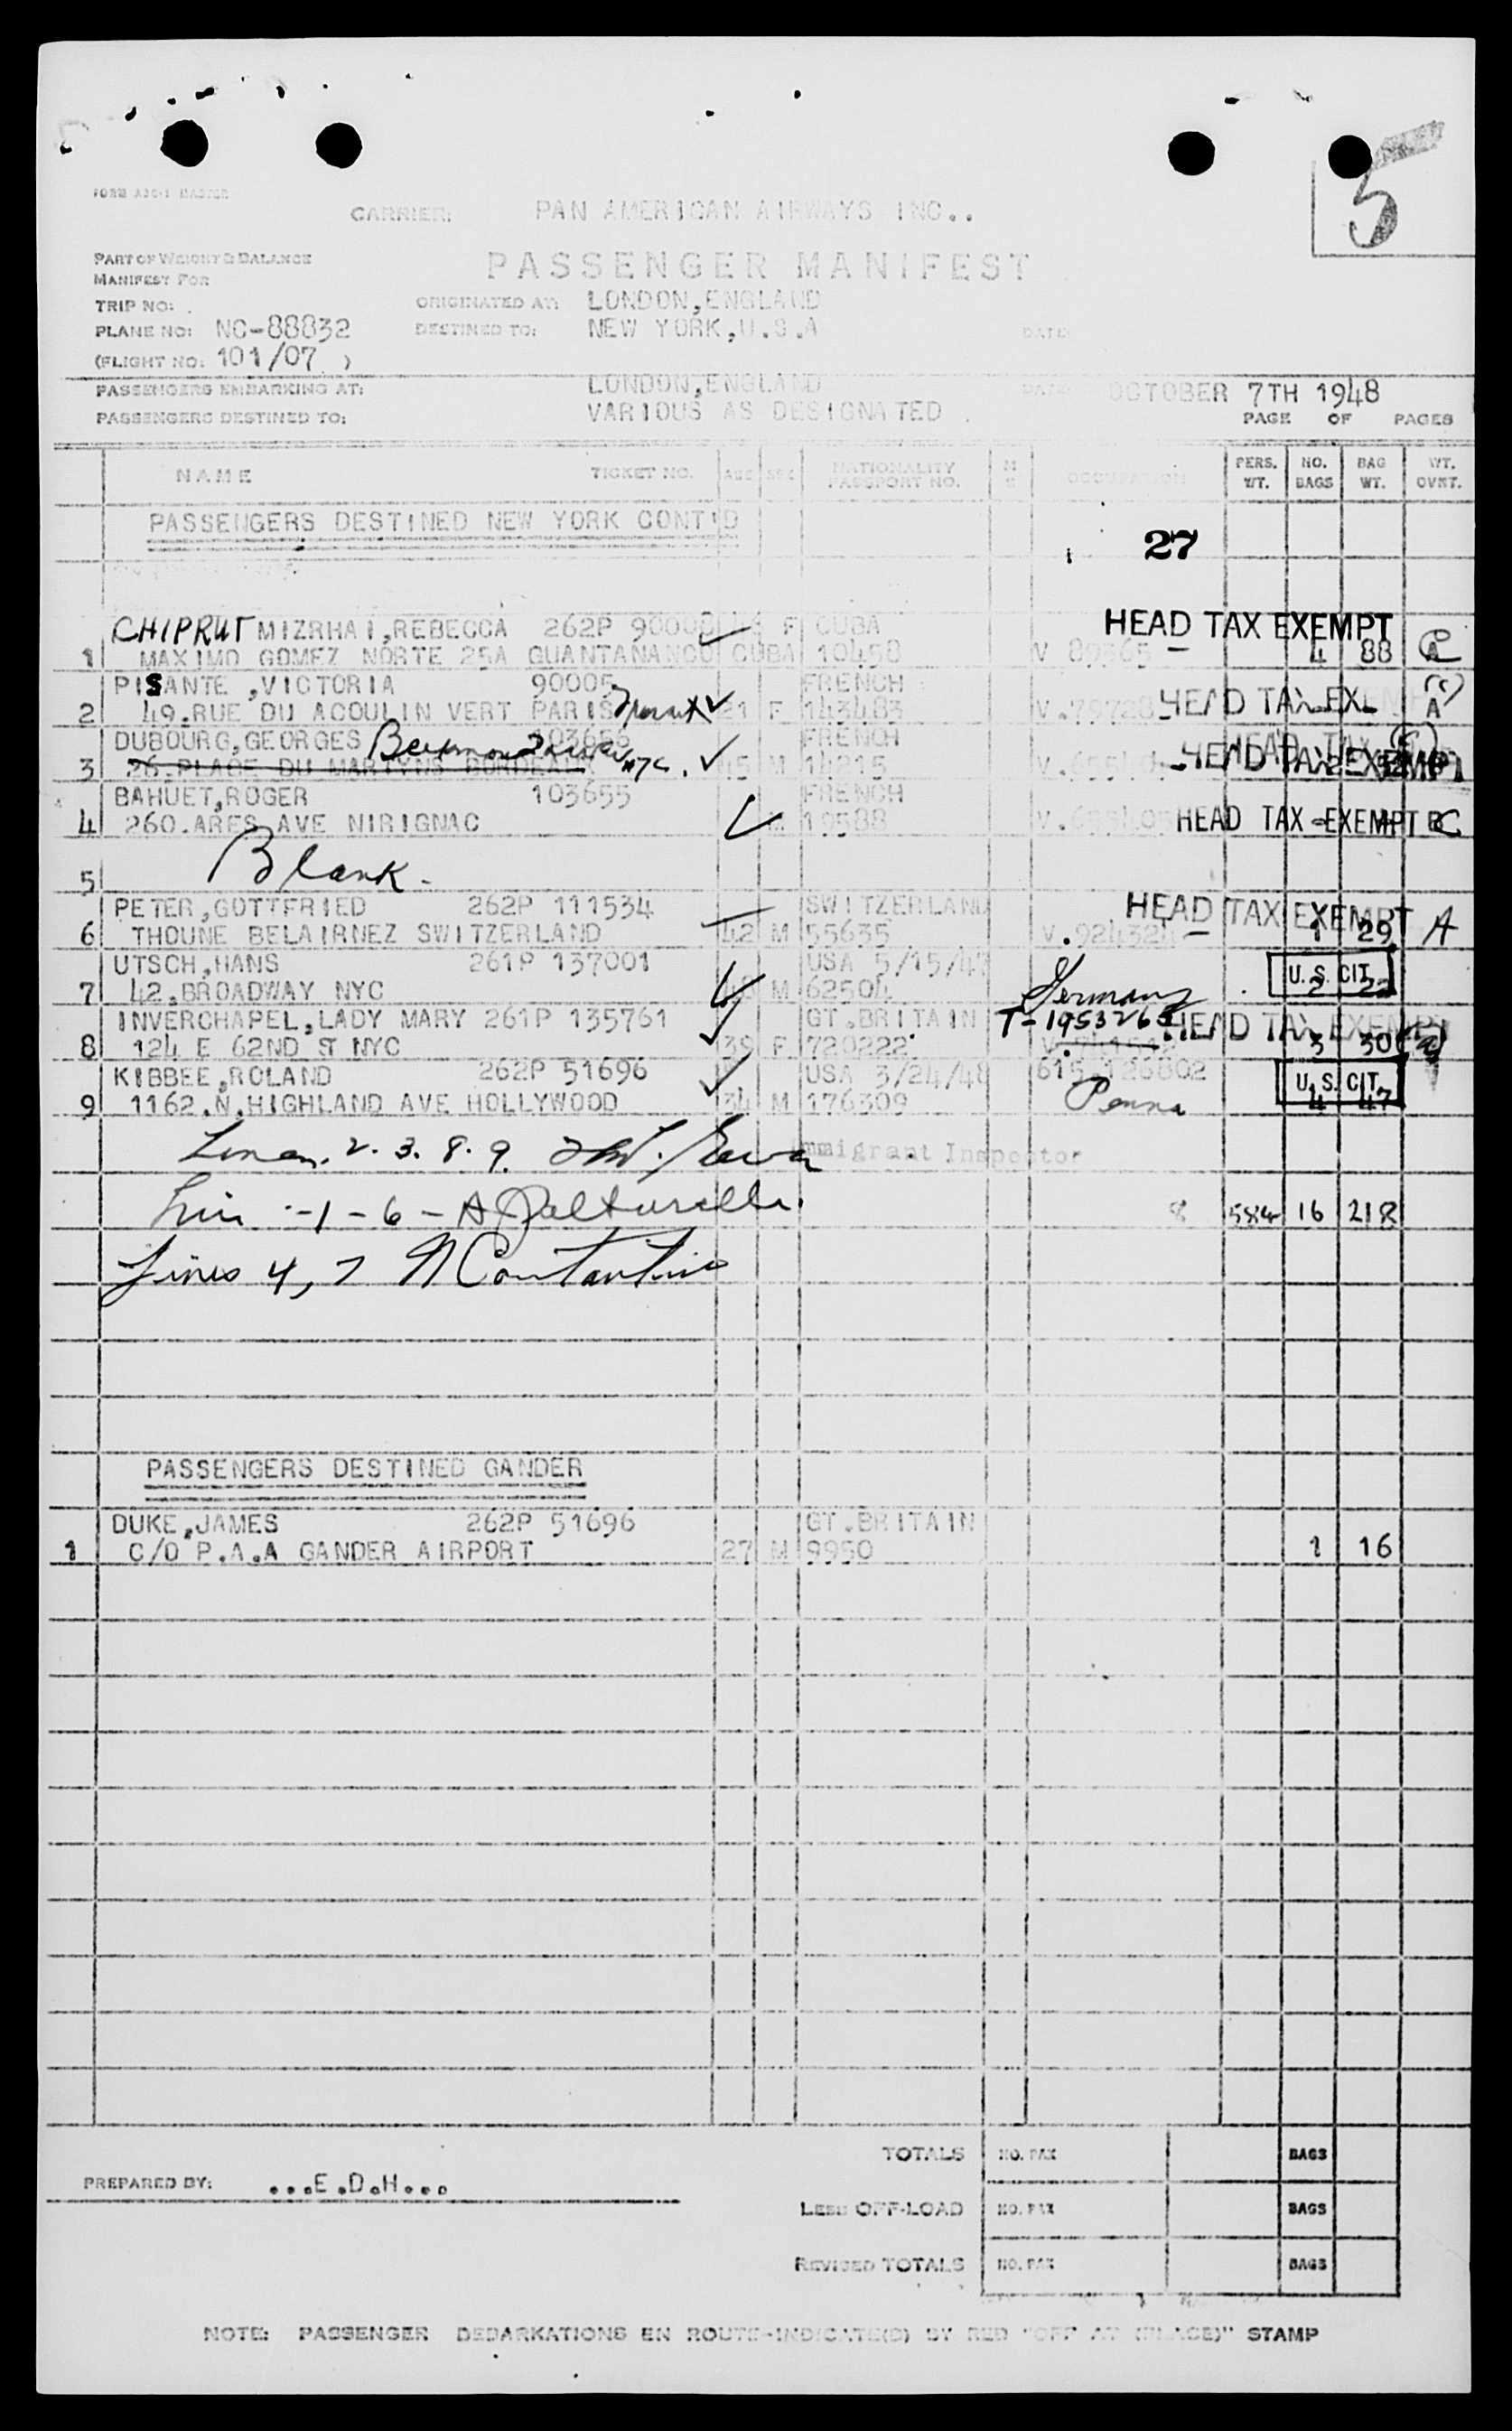 5
FORM
CARRIER: PAN AMERICAN AIRWAYS INC..
PART OF WEIGHT & BALANCE
MANIFEST FOR
PASSENGER MANIFEST
TRIP NO: .
ORIGINATED AT: LONDON,ENGLAND
PLANE NO: NC-88832
DESTINED TO: NEW YORK,U.S.A
DATE
(FLIGHT NO: 101/07 )
PASSENGERS EMBARKING AT: LONDON,ENGLAND DATE OCTOBER 7TH 1948
PASSENGERS DESTINED TO: VARIOUS AS DESIGNATED . PAGE OF PAGES
NAME TICKET NO. AGE SEX NATIONALITY PASSPORT NO. M S OCCUPATION PERS. WT. NO. BAGS BAG WT. WT. OVNT.
PASSENGERS DESTINED NEW YORK CONT'D
27
CHIPRUT MIZRHAI,REBECCA 262P 90008 F CUBA HEAD TAX EXEMPT
1 MAXIMO GOMEZ NORTE 25A GUANTANANCO CUBA 10458 V 89565 4 88 A
PISANTE ,VICTORIA 90005 FRENCH HEAD TAX EX
2 49.RUE DU ACOULIN VERT PARIS 21 F 143483 V.79728 A
DUBOURG,GEORGES 103656 FRENCH HEAD TAX EXEMPT
3 26.PLACE DU MARTYNS BORDEAUX 45 M 14215
BAHUET,ROGER 103655 FRENCH
4 260.ARES AVE NIRIGNAC M 19588 HEAD TAX EXEMPT
5 Blank.
PETER,GOTTFRIED 262P 111534 SWITZERLAND HEAD TAX EXEMPT
6 THOUNE BELAIRNEZ SWITZERLAND 42 M 55635 V.924324 1 29 A
UTSCH,HANS 261P 137001 USA 5/15/47 U.S. CIT.
7 42.BROADWAY NYC M 62504 2 22
Germany
INVERCHAPEL,LADY MARY 261P 135761 GT.BRITAIN T-1953265 HEAD TAX EXEMPT
8 124 E 62ND ST NYC 39 F 720222 3 30
KIBBEE,ROLAND 262P 51696 USA 3/24/48 615.126802 U.S. CIT.
9 1162.N.HIGHLAND AVE HOLLYWOOD 34 M 176309 Penna 4 47
Lines. 2. 3. 8. 9. Immigrant Inspector
-1-6-
8 584 16 218
Lines 4, 7
PASSENGERS DESTINED GANDER
DUKE,JAMES 262P 51696 GT.BRITAIN
1 C/O P.A.A GANDER AIRPORT 27 M 9950 1 16
TOTALS NO. PAX BAGS
PREPARED BY: ...E.D.H...
LESS OFF-LOAD NO. PAX BAGS
REVISED TOTALS NO. PAX BAGS
NOTE: PASSENGER DEBARKATIONS EN ROUTE-INDICATE(D) BY RED "OFF AT (PLACE)" STAMP